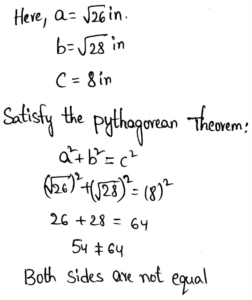 Here, a = √26 in.
b = √28 in
C = 8 in
Satisfy the pythagorean Theorem:
a² + b² = c²
(√26)² + (√28)² = (8)²
26 + 28 = 64
54 ≠ 64
Both sides are not equal